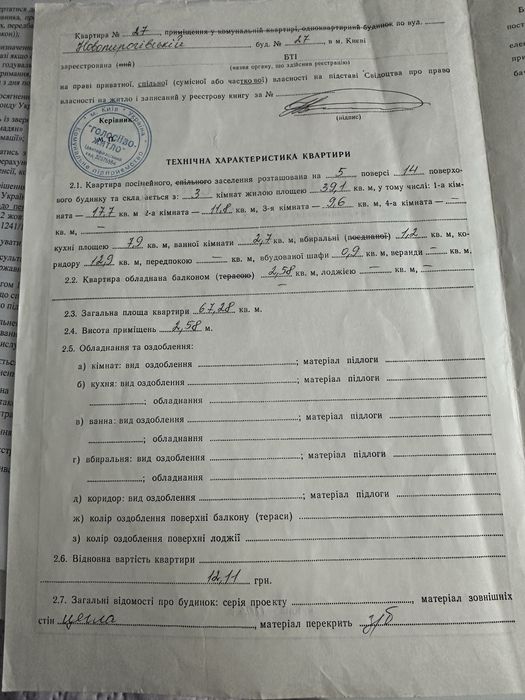 Квартира № 27, приміщення у комунальній квартирі, одноквартирний будинок по вул.
Новопирогівській буд. № 27, в м. Києві
зареєстрована (ий) БТІ
(назва органу, що здійснив реєстрацію)
на праві приватної, спільної (сумісної або часткової) власності на підставі Свідоцтва про право
власності на житло і записаний у реєстрову книгу за №
Керівник
(підпис)
м. Київ * Україна
"ГОЛОСІЇВО-
ЖИТЛО"
М. П.
ТЕХНІЧНА ХАРАКТЕРИСТИКА КВАРТИРИ
2.1. Квартира посімейного, спільного заселення розташована на 5 поверсі 14 поверхо-
вого будинку та скла ається з: 3 кімнат жилою площею 39,1 кв. м, у тому числі: 1-а кім-
ната — 17,7 кв. м 2-а кімната — 11,8 кв. м, 3-я кімната — 9,6 кв. м, 4-а кімната — —
кв. м, —
кухні площею 7,9 кв. м, ванної кімнати 2,7 кв. м, вбиральні (поєднаної) 1,2 кв. м, ко-
ридору 12,9 кв. м, передпокою — кв. м, вбудованої шафи 0,9 кв. м, веранди — кв. м.
2.2. Квартира обладнана балконом (терасою) 2,58 кв. м, лоджією — кв. м, —
—
2.3. Загальна площа квартири 67,28 кв. м.
2.4. Висота приміщень 2,58 м.
2.5. Обладнання та оздоблення:
а) кімнат: вид оздоблення ; матеріал підлоги
б) кухня: вид оздоблення ; матеріал підлоги
; обладнання
в) ванна: вид оздоблення ; матеріал підлоги
; обладнання
г) вбиральня: вид оздоблення ; матеріал підлоги
; обладнання
д) коридор: вид оздоблення ; матеріал підлоги
ж) колір оздоблення поверхні балкону (тераси)
з) колір оздоблення поверхні лоджії
2.6. Відновна вартість квартири
12,11 грн.
2.7. Загальні відомості про будинок: серія проекту , матеріал зовнішніх
стін цегла , матеріал перекрить з/б